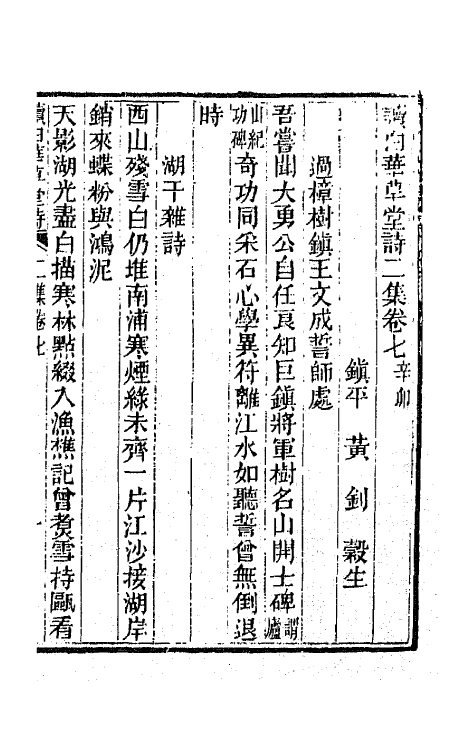 讀白華草堂詩二集卷七辛卯
鎮平　黃　釗　穀生
過樟樹鎮王文成誓師處
吾嘗聞大勇公自任良知巨鎮將軍樹名山開士碑謂廬
山紀功碑奇功同采石心學異符離江水如聽誓曾無倒退
時
湖干雜詩
西山殘雪白仍堆南浦寒煙綠未齊一片江沙接湖岸
銷來蝶粉與鴻泥
天影湖光盡白描寒林點綴入漁樵記曾煑雪持甌看
讀白華草堂詩　二集卷七